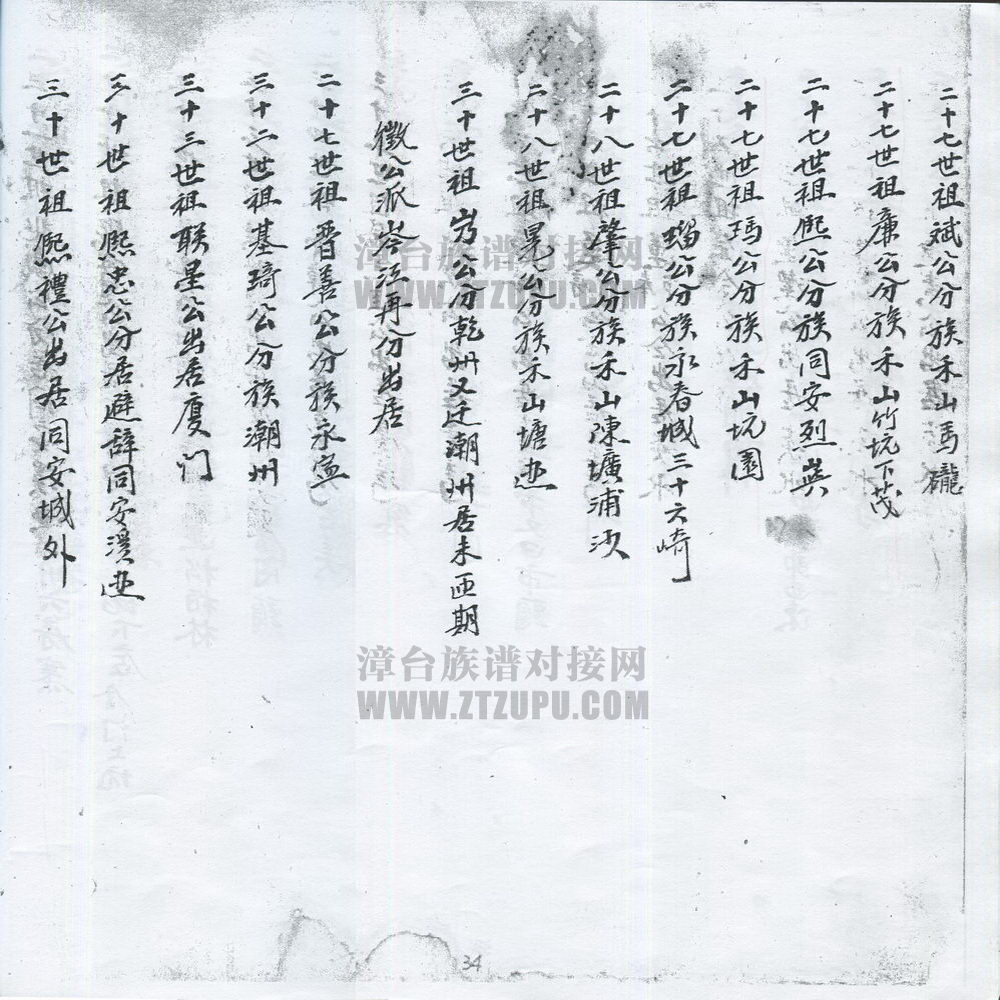 二十七世祖斌公分族禾山馬礲
二十七世祖廉公分族禾山竹坑下茂
二十七世祖熙公分族同安烈嶼
二十七世祖瑪公分族禾山坑園
二十七世祖瑠公分族永春城三十六崎
二十八世祖肇公分族禾山陳壙浦沙
二十八世祖晃公分族禾山塘边
三十世祖 公分乾州又迁潮州居未画期
徵公派岑江再分出居
二十七世祖晋善公分族永寧
三十二世祖基琦公分族潮州
三十三世祖联星公出居厦门
三十世祖熙忠公分居避辞同安溪边
三十世祖熙禮公出居同安城外
漳台族谱对接网
WWW.ZTZUPU.COM
漳台族谱对接网
WWW.ZTZUPU.COM
34